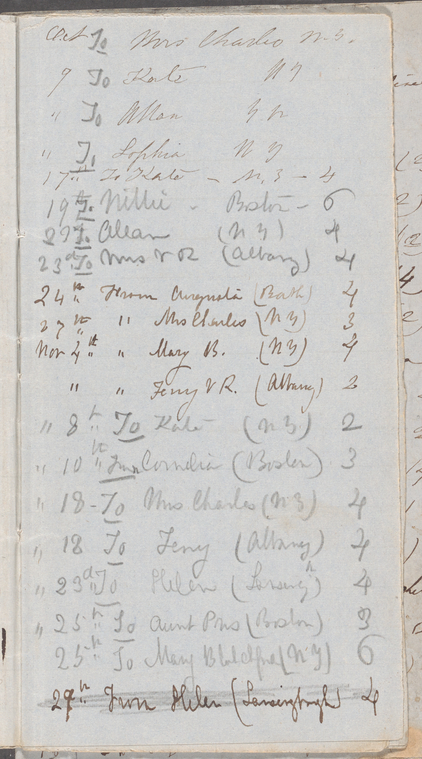 Oct To Mrs Charles N.Y.
9 To Kate N Y
" To Allan Y N
" To Sophia N Y
17th To Kate - N.Y - 4
19th To Nillie - Boston - 6
To Allan (N Y) 4
23d To Mrs V R (Albany) 4
24th From Augusta (Bath) 4
27th " Mrs Charles (N Y) 3
Nov 4th " Mary B. (N Y) 4
" " Fenny V R. (Albany) 2
" 8th To Kate (N Y) 2
" 10th From Cornelia (Boston) 3
" 18 - To Mrs Charles (N Y) 4
" 18 To Fenny (Albany) 4
" 23d To Helen (Lansingh) 4
" 25th To Aunt Pris (Boston) 3
25th To Mary (N Y) 6
29th From Helen (Lansingburgh) 4